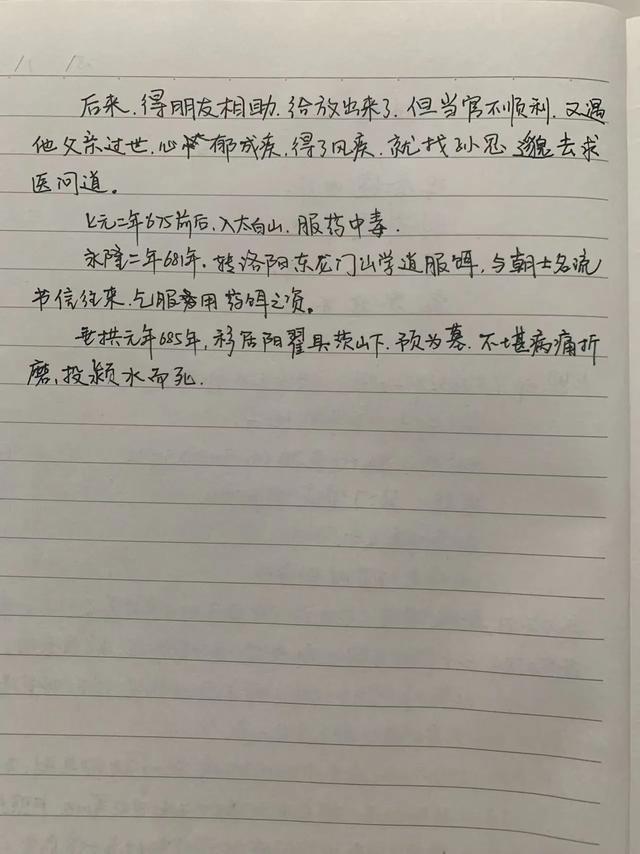 后来，得朋友相助，给放出来了，但当官不顺利，又遇
他父亲过世，心中郁成疾，得了风疾，就找孙思邈去求
医问道。
上元二年675前后，入太白山，服药中毒。
永隆二年681年，转洛阳东龙门山学道服饵，与朝士名流
书信往来，乞服寄用药饵之资。
垂拱元年685年，移居阳翟具茨山下，预为墓，不堪病痛折
磨，投颍水而死。